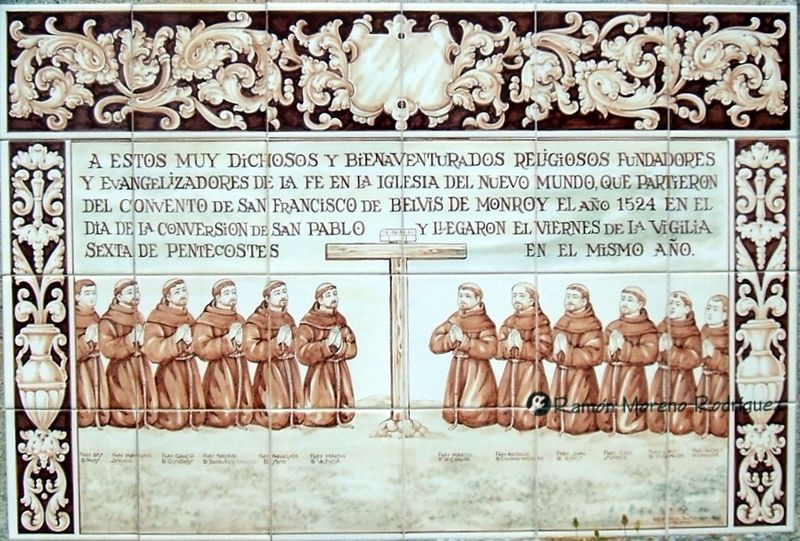 A ESTOS MUY DICHOSOS Y BIENAVENTURADOS RELIGIOSOS FUNDADORES
Y EVANGELIZADORES DE LA FE EN LA IGLESIA DEL NUEVO MUNDO, QUE PARTIERON
DEL CONVENTO DE SAN FRANCISCO DE BELVIS DE MONROY EL AÑO 1524 EN EL
DIA DE LA CONVERSION DE SAN PABLO Y LLEGARON EL VIERNES DE LA VIGILIA
SEXTA DE PENTECOSTES EN EL MISMO AÑO.
Ramón Moreno Rodríguez
FRAY GARCIA FRAY FRANCISCO FRAY MARTIN FRAY MARTIN FRAY ANTONIO FRAY JUAN
D VALENCIA